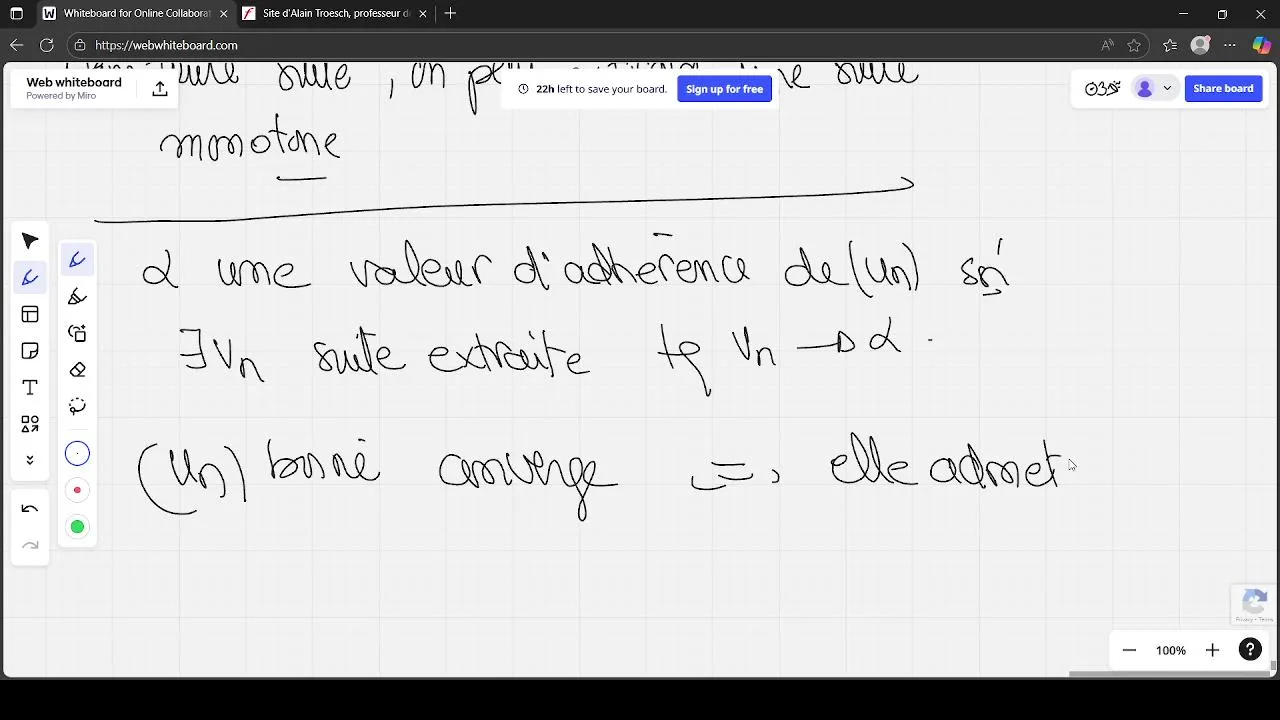 Whiteboard for Online Collaborat
Site d'Alain Troesch, professeur d
https://webwhiteboard.com
suite, on peut suite
Web whiteboard
Powered by Miro
22h left to save your board.
Sign up for free
Share board
monotone
α une valeur d'adhérence de (Un) si
∃ Vn suite extraite tq Vn → α.
(Un) borné converge <=> elle admet
Privacy - Terms
100%